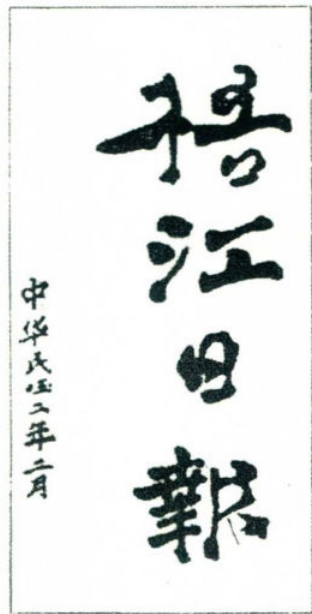 梧江日報
中华民国二年二月